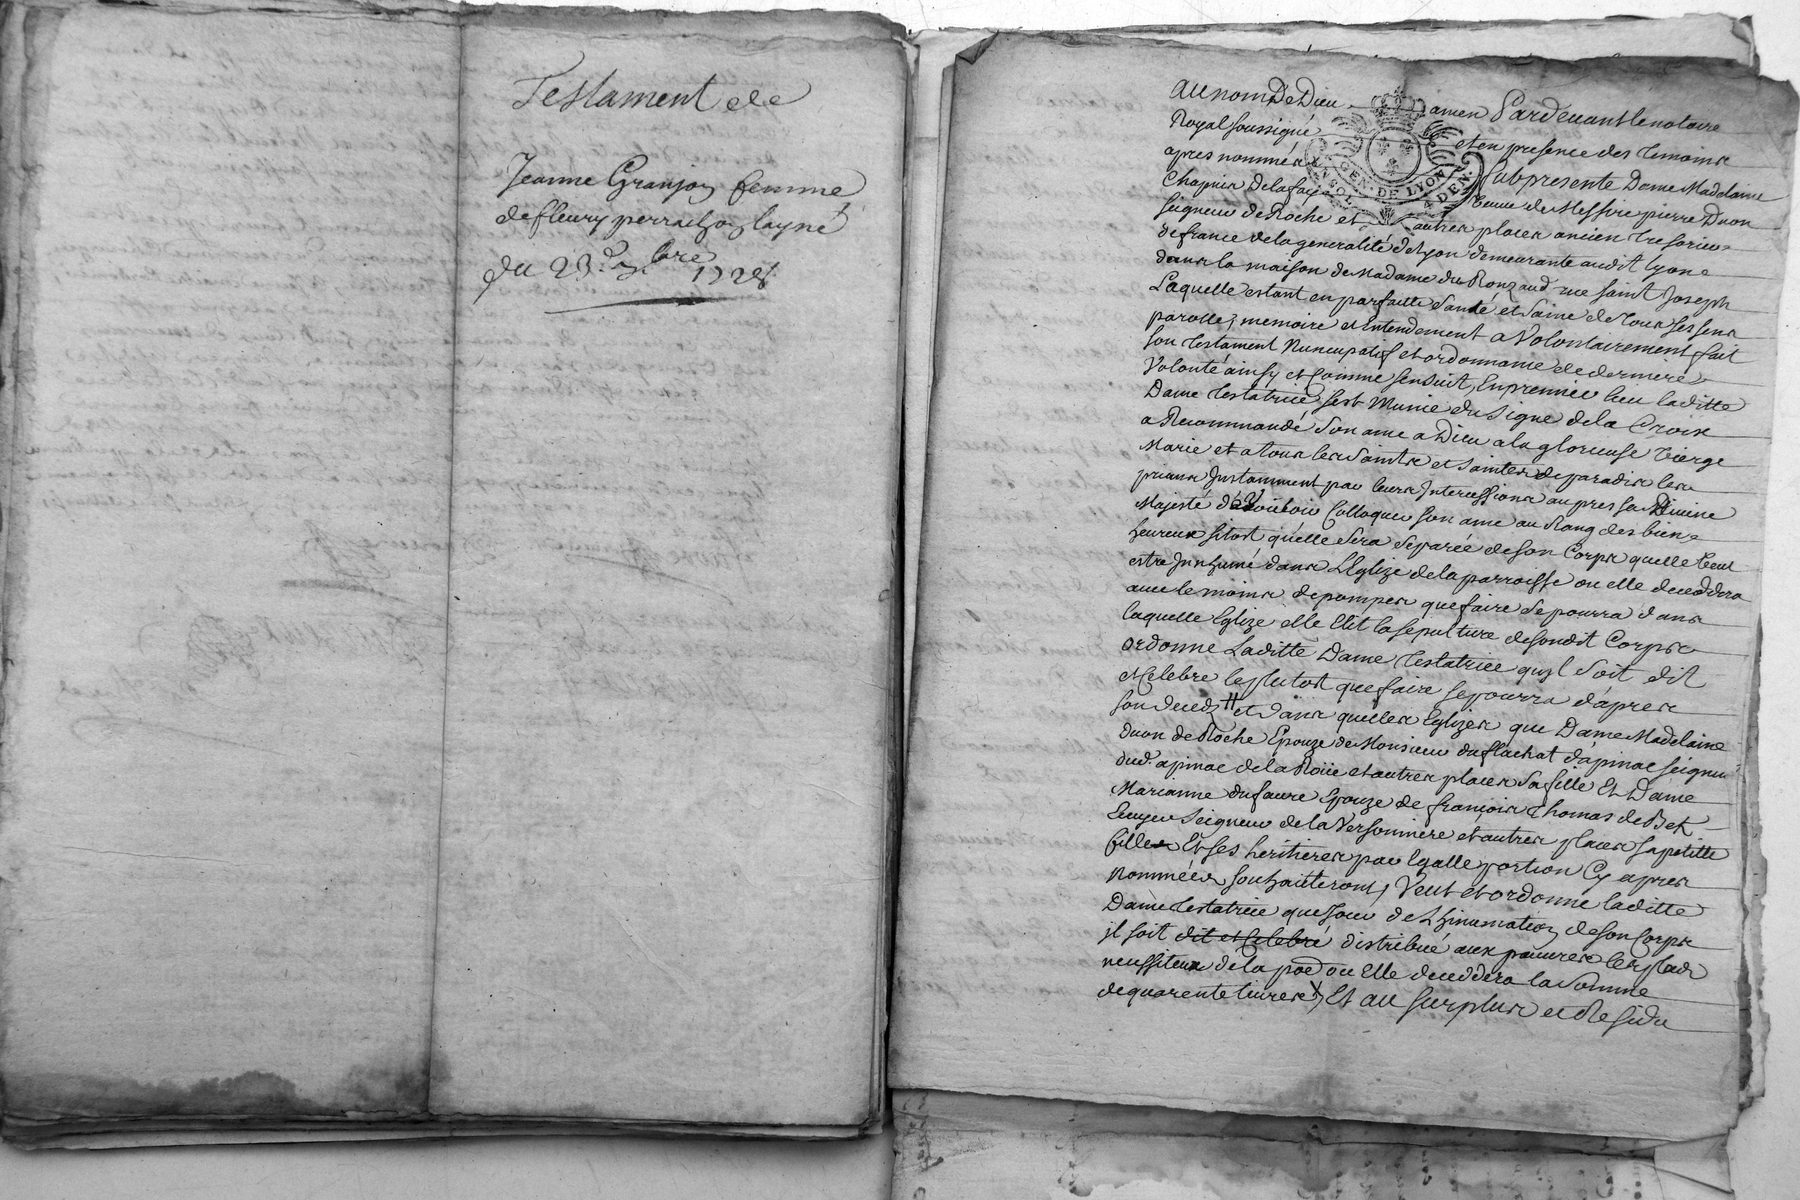 Testament de
Jeanne Granjon femme
de fleury perrachon layné
du 23e 7bre 1728
au nom De Dieu amen Pardevant le notaire
Royal soussigné et en presence des temoins
apres nommés fut presente Dame Madelaine
Chapuis de la faye veuve de Messire pierre Duon
seigneur de Roche et autres places ancien tresorier
de france de la generalité de Lyon demeurante audit Lyon
dans la maison de Madame du Ronzaud rue saint Joseph
Laquelle estant en parfaitte santé et saine de tous ses sens
parolle, memoire et Entendement a Volontairement fait
son testament Nuncupatif et ordonnance de derniere
Volonté ainsy et Comme sensuit, En premier lieu laditte
Dame testatrice sest Munie du Signe de la Croix
a Recommandé son ame a Dieu a la glorieuse vierge
Marie et a tous les saints et saintes de paradis les
priant Instamment par leurs Intercessions aupres sa Divine
Majesté de Vouloir Colloquer son ame au Rang des bien
heureux sitost quelle sera separée de son Corps quelle veut
estre Inhumé dans LEglize de la parroisse ou elle deceddera
avec le moins de pompes que faire se pourra dans
laquelle Eglize elle Elit la sepulture de sondit Corps
ordonne Laditte Dame testatrice quil soit dit
et Celebre le plutost que faire se pourra dapres
son deceds # et dans quelles Eglizes que Dame Madelaine
duon de Roche Epouze de Monsieur du flachat dapinac seigneur
dud. apinac de la Roüe et autres places sa fille Et Dame
Marianne dufaure Epouze de françois thomas de Bek
Ecuyer Seigneur de la Versonniere et autres places sa petitte
fille Et ses heritieres par Egalle portion Cy apres
nommées souhaitteront, Veut et ordonne laditte
Dame testatrice que Jour de Lhinumation de son Corps
il soit dit et Celebré distribué aux pauvres les plus
necessiteux de la poe ou Elle deceddera la somme
de quarente livres, Et au surplus et Residu